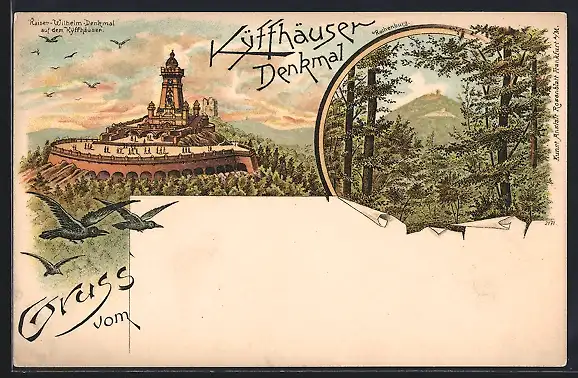 Kaiser-Wilhelm-Denkmal
auf dem Kyffhäuser.
Kyffhäuser
Denkmal
Rothenburg.
Kunst Anstalt Rosenblatt Frankfurt a/M.
Gruss
vom